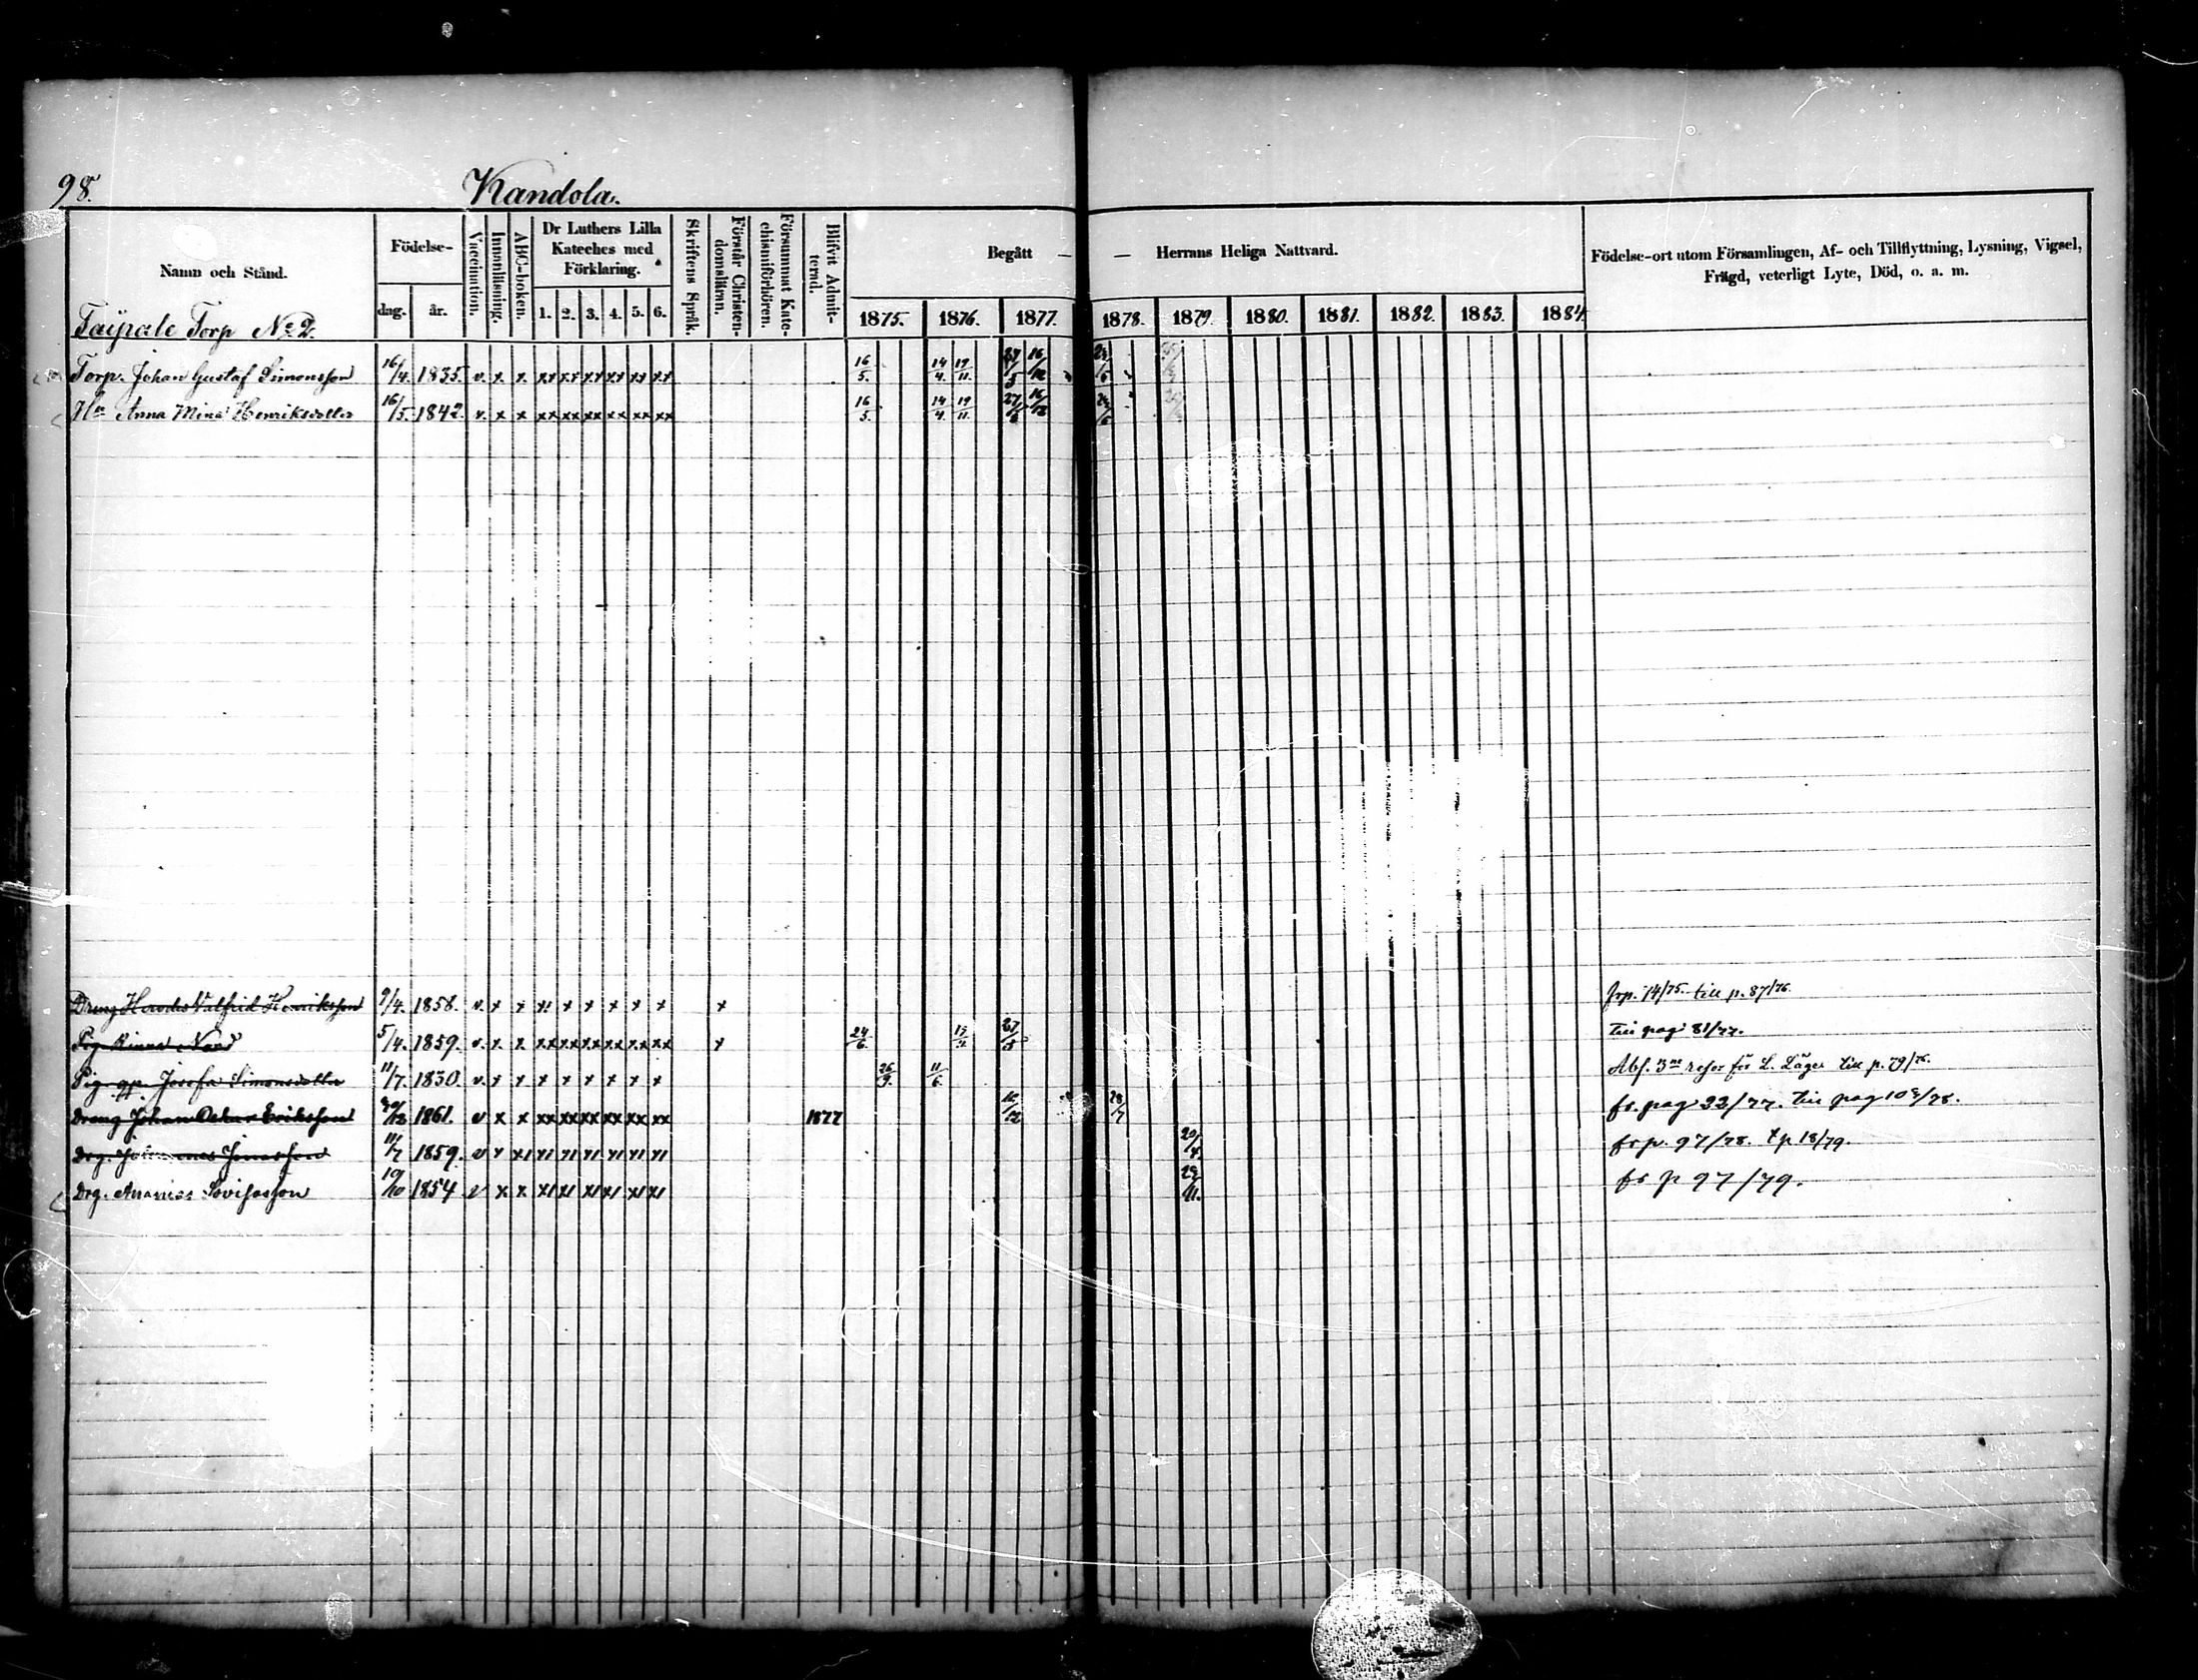 98.
Kandola.
Namn och Stånd.
Födelse-
dag. år.
Vaccination.
Innanläsning.
ABC-boken.
Dr Luthers Lilla Kateches med Förklaring.
1. 2. 3. 4. 5. 6.
Skriftens Språk.
Förstår Christendomsläran.
Försummat Katechismiförhören.
Blifvit Admitterad.
Begått — — Herrans Heliga Nattvard.
1875. 1876. 1877. 1878. 1879. 1880. 1881. 1882. 1883. 1884
Födelse-ort utom Församlingen, Af- och Tillflyttning, Lysning, Vigsel,
Frägd, veterligt Lyte, Död, o. a. m.
Taipale Torp No 2.
Torp. Johan Gustaf Simonsson 16/4. 1835. v. x x xx xx xx xx xx xx 16/5. 14/4. 19/11. 27/5 16/12
Hu Anna Mina Henriksdotter 16/5. 1842. v. x x xx xx xx xx xx xx 16/5. 14/4. 19/11. 27/5 16/12
Dreng Walfrid Henriksson 9/4. 1858. v. x x x x x x x x frp. 14/75. till p. 87/76.
Pig. 5/4. 1859. v. x x xx xx xx xx xx xx x 24/6. 27/5 till pag 81/77.
Pig. Josefa Simonsdotter 11/7. 1830. v. x x x x x x x x 26/9. 11/6. till p. 79/76.
Dreng Johan Oskar Eriksson 1861. v x x xx xx xx xx xx xx 1877 28/7 fr. pag 22/77. till pag
Drg. Johannes 11/7 1859. v x 20/4. fr p. 97/78. t p 18/79.
Drg. Ananias Lovisasson 19/10 1854 v x x 11. fr p 97/79.